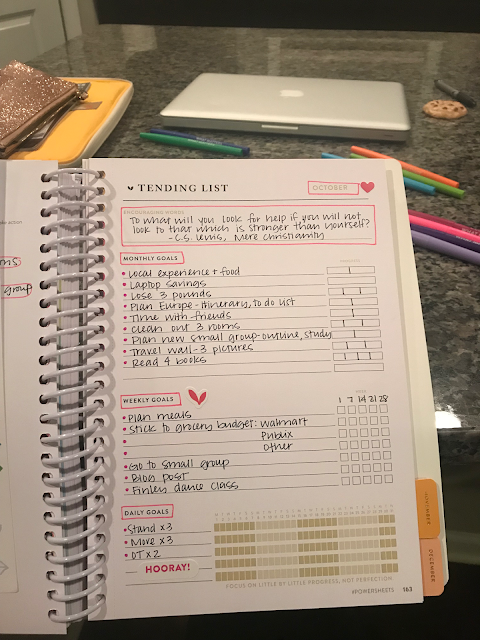 TENDING LIST
OCTOBER
ENCOURAGING WORDS
To what will you look for help if you will not
look to that which is stronger than yourself?
- C.S. Lewis, Mere Christianity
MONTHLY GOALS
Local experience + food
Laptop savings
Lose 3 pounds
Plan Europe - itinerary, to do list
Time with friends
Clean out 3 rooms
Plan new small group - outline, study
Travel wall - 3 pictures
Read 4 books
WEEKLY GOALS
1 7 14 21 28
Plan meals
Stick to grocery budget: Walmart
Publix
Other
Go to small group
Blog post
Finley dance class
DAILY GOALS
Stand x3
Move x3
OT x 2
HOORAY!
FOCUS ON LITTLE BY LITTLE PROGRESS, NOT PERFECTION
#POWERSHEETS 163
NOVEMBER
DECEMBER
group